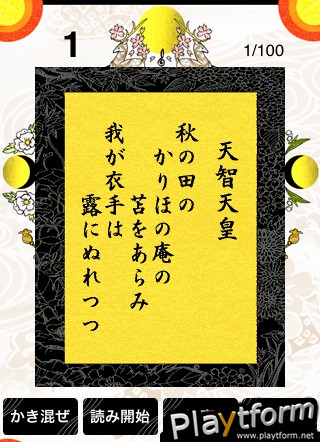 1
1/100
天智天皇
秋の田の
かりほの庵の
苫をあらみ
我が衣手は
露にぬれつつ
かき混ぜ
読み開始
Playtform
www.playtform.net